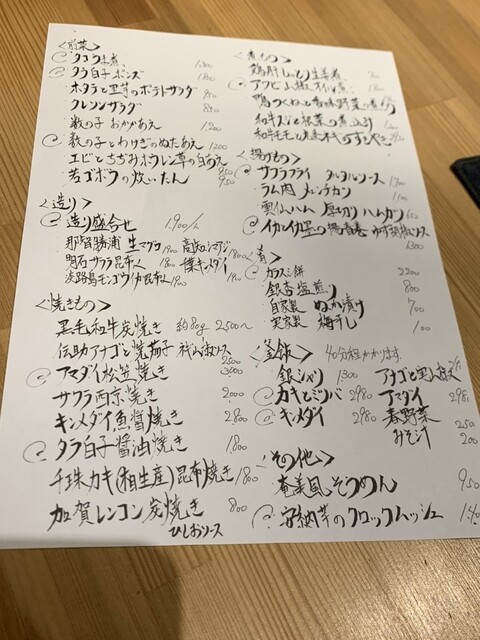 <前菜>
タコうま煮
タラ白子ポンズ 1800
ホタテと里芋のポテトサラダ 900
クレソンサラダ 800
数の子 おかかあえ 1200
数の子とわけぎのぬたあえ 1200
エビとちぢみホウレン草の白あえ 950
若ゴボウの炊いたん 950
<造り>
造り盛合せ 1,900/人
那智勝浦 生マグロ 1900 高知ロシマアジ 1800
明石サワラ昆布〆 1800 一葉キンメダイ
淡路島モンゴウイカ昆布〆 1800
<焼きもの>
黒毛和牛炭焼き 約80g 2500〜
伝助アナゴと茄子 ソース 2500
アマダイ松笠焼き 3000
サワラ西京焼き 2000
キンメダイ魚醤焼き 2800
タラ白子醤油焼き 1800
千珠カキ(相生産)昆布焼き 1800
加賀レンコン炭焼き 800
ひしおソース
<煮もの>
鶏肝しっとり生姜煮
アワビ山椒
鴨つくねと香味野菜の
和牛スジと根菜の煮込み
和牛モモと のすきやき
<揚げもの>
サワラフライ タルタルソース 1700
ラム肉 メンチカツ 1100
雲仙ハム 厚切りハムカツ
イカと の ゆず胡椒ソース
1300
<肴>
カラスミ餅 2200
銀杏塩煎り 800
自家製 ぬか漬け 700
実家製 梅干し 100
<釜飯> 40分程かかります
銀シャリ 1300 アナゴと実山椒
カキとミツバ 2980 アマダイ
キンメダイ 2980 春野菜
みそ汁 200
<その他>
奄美風そうめん 950
安納芋のクロックムッシュ